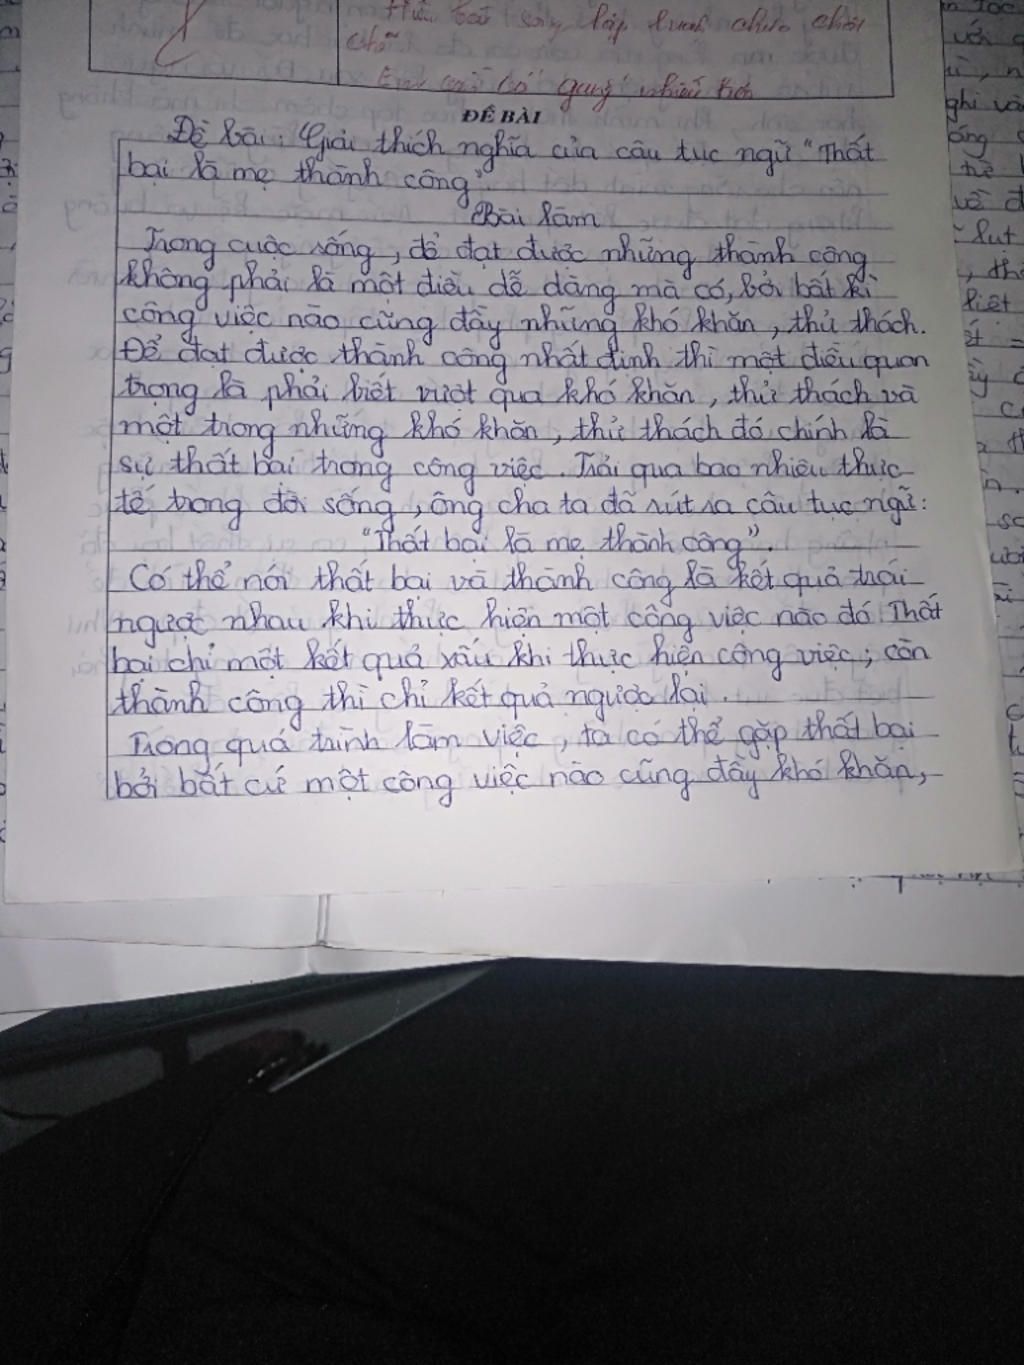 Hiểu bài song lập luận chưa chặt
chẽ
Em cần cố gắng nhiều hơn
ĐỀ BÀI
Đề bài: Giải thích nghĩa của câu tục ngữ "Thất
bại là mẹ thành công"
Bài làm
Trong cuộc sống, để đạt được những thành công
không phải là một điều dễ dàng mà có, bởi bất kì
công việc nào cũng đầy những khó khăn, thử thách.
Để đạt được thành công nhất định thì một điều quan
trọng là phải biết vượt qua khó khăn, thử thách và
một trong những khó khăn, thử thách đó chính là
sự thất bại trong công việc. Trải qua bao nhiêu thực
tế trong đời sống, ông cha ta đã rút ra câu tục ngữ:
"Thất bại là mẹ thành công".
Có thể nói thất bại và thành công là kết quả trái
ngược nhau khi thực hiện một công việc nào đó. Thất
bại chỉ một kết quả xấu khi thực hiện công việc; còn
thành công thì chỉ kết quả ngược lại.
Trong quá trình làm việc, ta có thể gặp thất bại
bởi bất cứ một công việc nào cũng đầy khó khăn,